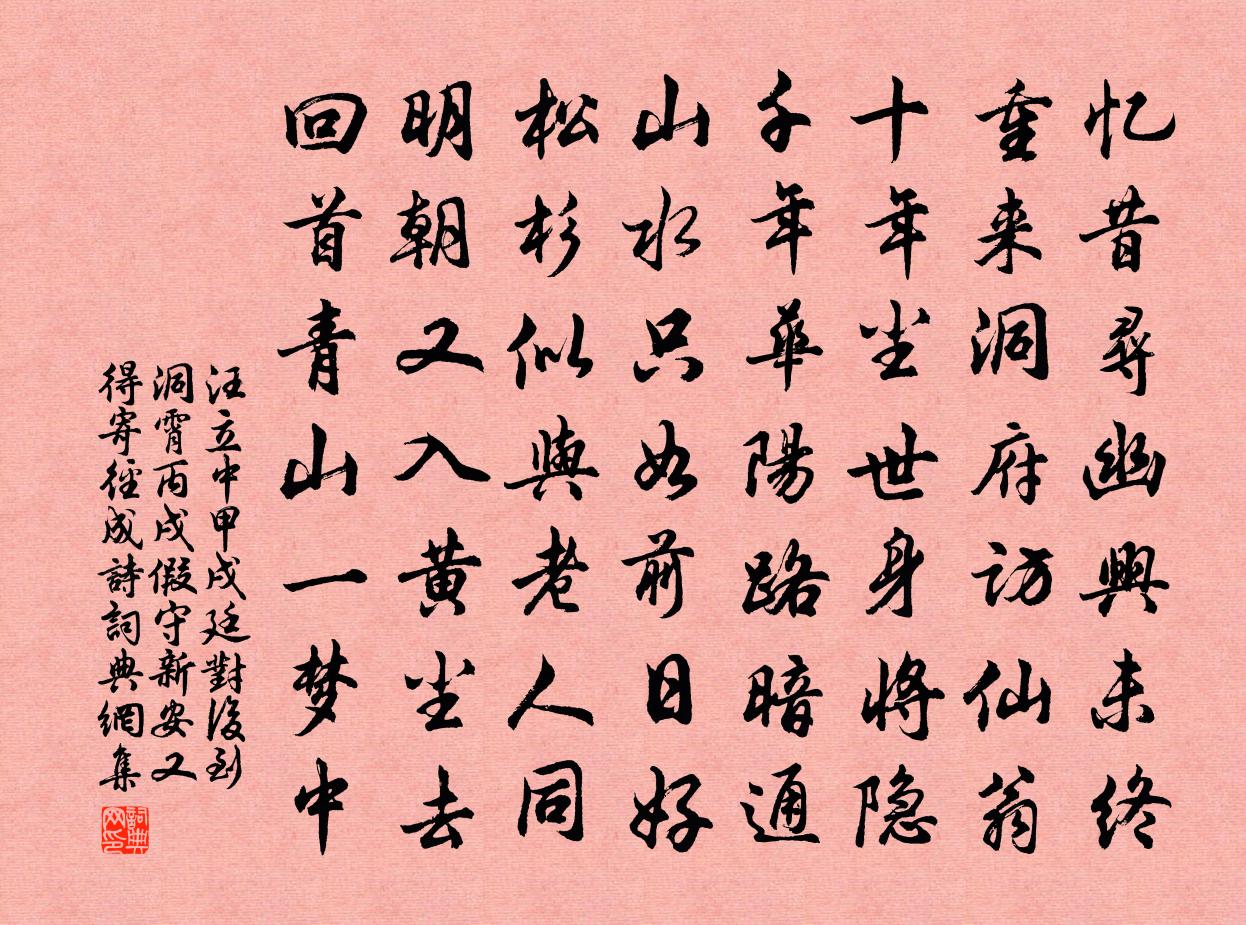 忆昔尋幽興未终
重来洞府访仙翁
十年尘世身将隐
千年華陽路暗通
山水只如前日好
松杉似與老人同
明朝又入黄尘去
回首青山一梦中
汪立中甲戌廷對後到
洞霄丙戌假守新安又
得寄径成詩詞典網集
詞典网印